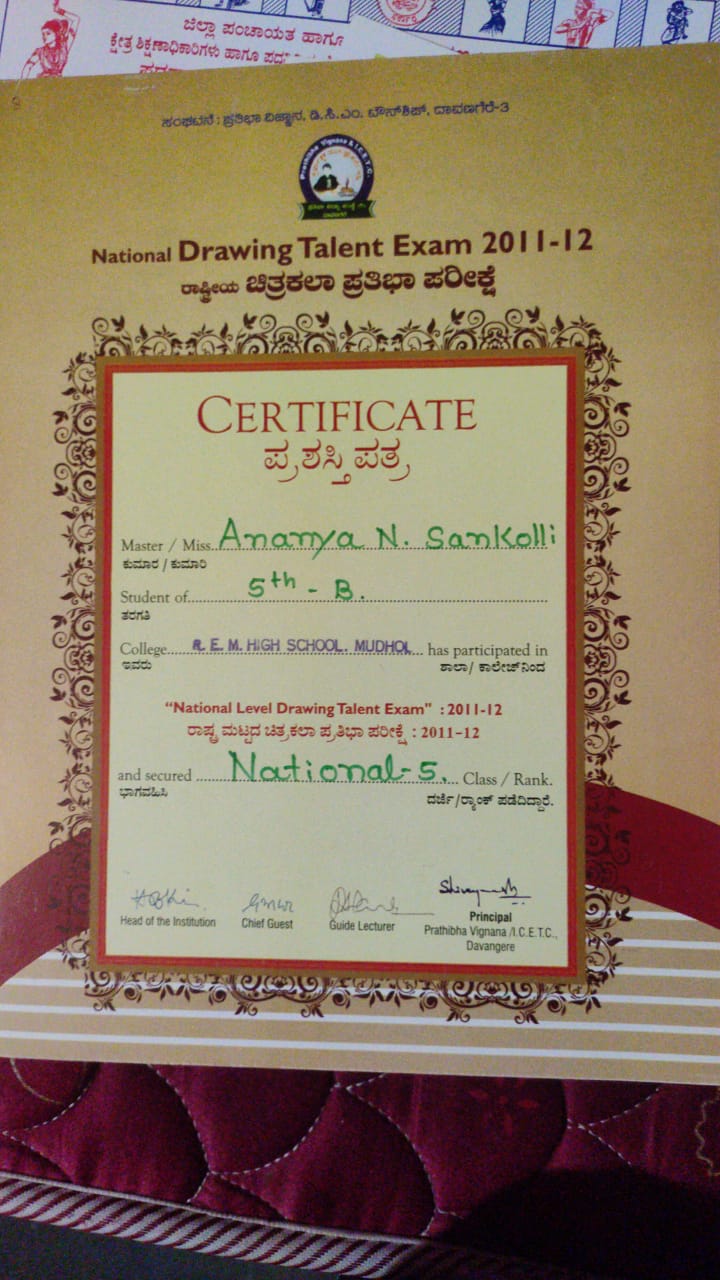 ಜಿಲ್ಲಾ ಪಂಚಾಯತ ಹಾಗೂ
ಕ್ಷೇತ್ರ ಶಿಕ್ಷಣಾಧಿಕಾರಿಗಳು ಹಾಗೂ
ಸಂಘಟನೆ : ಪ್ರತಿಭಾ ವಿಜ್ಞಾನ, ಡಿ.ಸಿ.ಎಂ. ಟೌನ್‌ಶಿಪ್, ದಾವಣಗೆರೆ-3
Prathibha Vignana & I.C.E.T.C.
ದಾವಣಗೆರೆ
National Drawing Talent Exam 2011-12
ರಾಷ್ಟ್ರೀಯ ಚಿತ್ರಕಲಾ ಪ್ರತಿಭಾ ಪರೀಕ್ಷೆ
CERTIFICATE
ಪ್ರಶಸ್ತಿ ಪತ್ರ
Master / Miss. Ananya N. Sankolli
ಕುಮಾರ / ಕುಮಾರಿ
Student of 5th - B.
ತರಗತಿ
College R. E. M. HIGH SCHOOL. MUDHOL has participated in
ಇವರು ಶಾಲಾ/ ಕಾಲೇಜ್‌ನಿಂದ
"National Level Drawing Talent Exam" : 2011-12
ರಾಷ್ಟ್ರ ಮಟ್ಟದ ಚಿತ್ರಕಲಾ ಪ್ರತಿಭಾ ಪರೀಕ್ಷೆ : 2011-12
and secured National-5. Class / Rank.
ಭಾಗವಹಿಸಿ ದರ್ಜೆ/ರ‍್ಯಾಂಕ್ ಪಡೆದಿದ್ದಾರೆ.
Head of the Institution Chief Guest Guide Lecturer Principal
Prathibha Vignana /I.C.E.T.C.,
Davangere